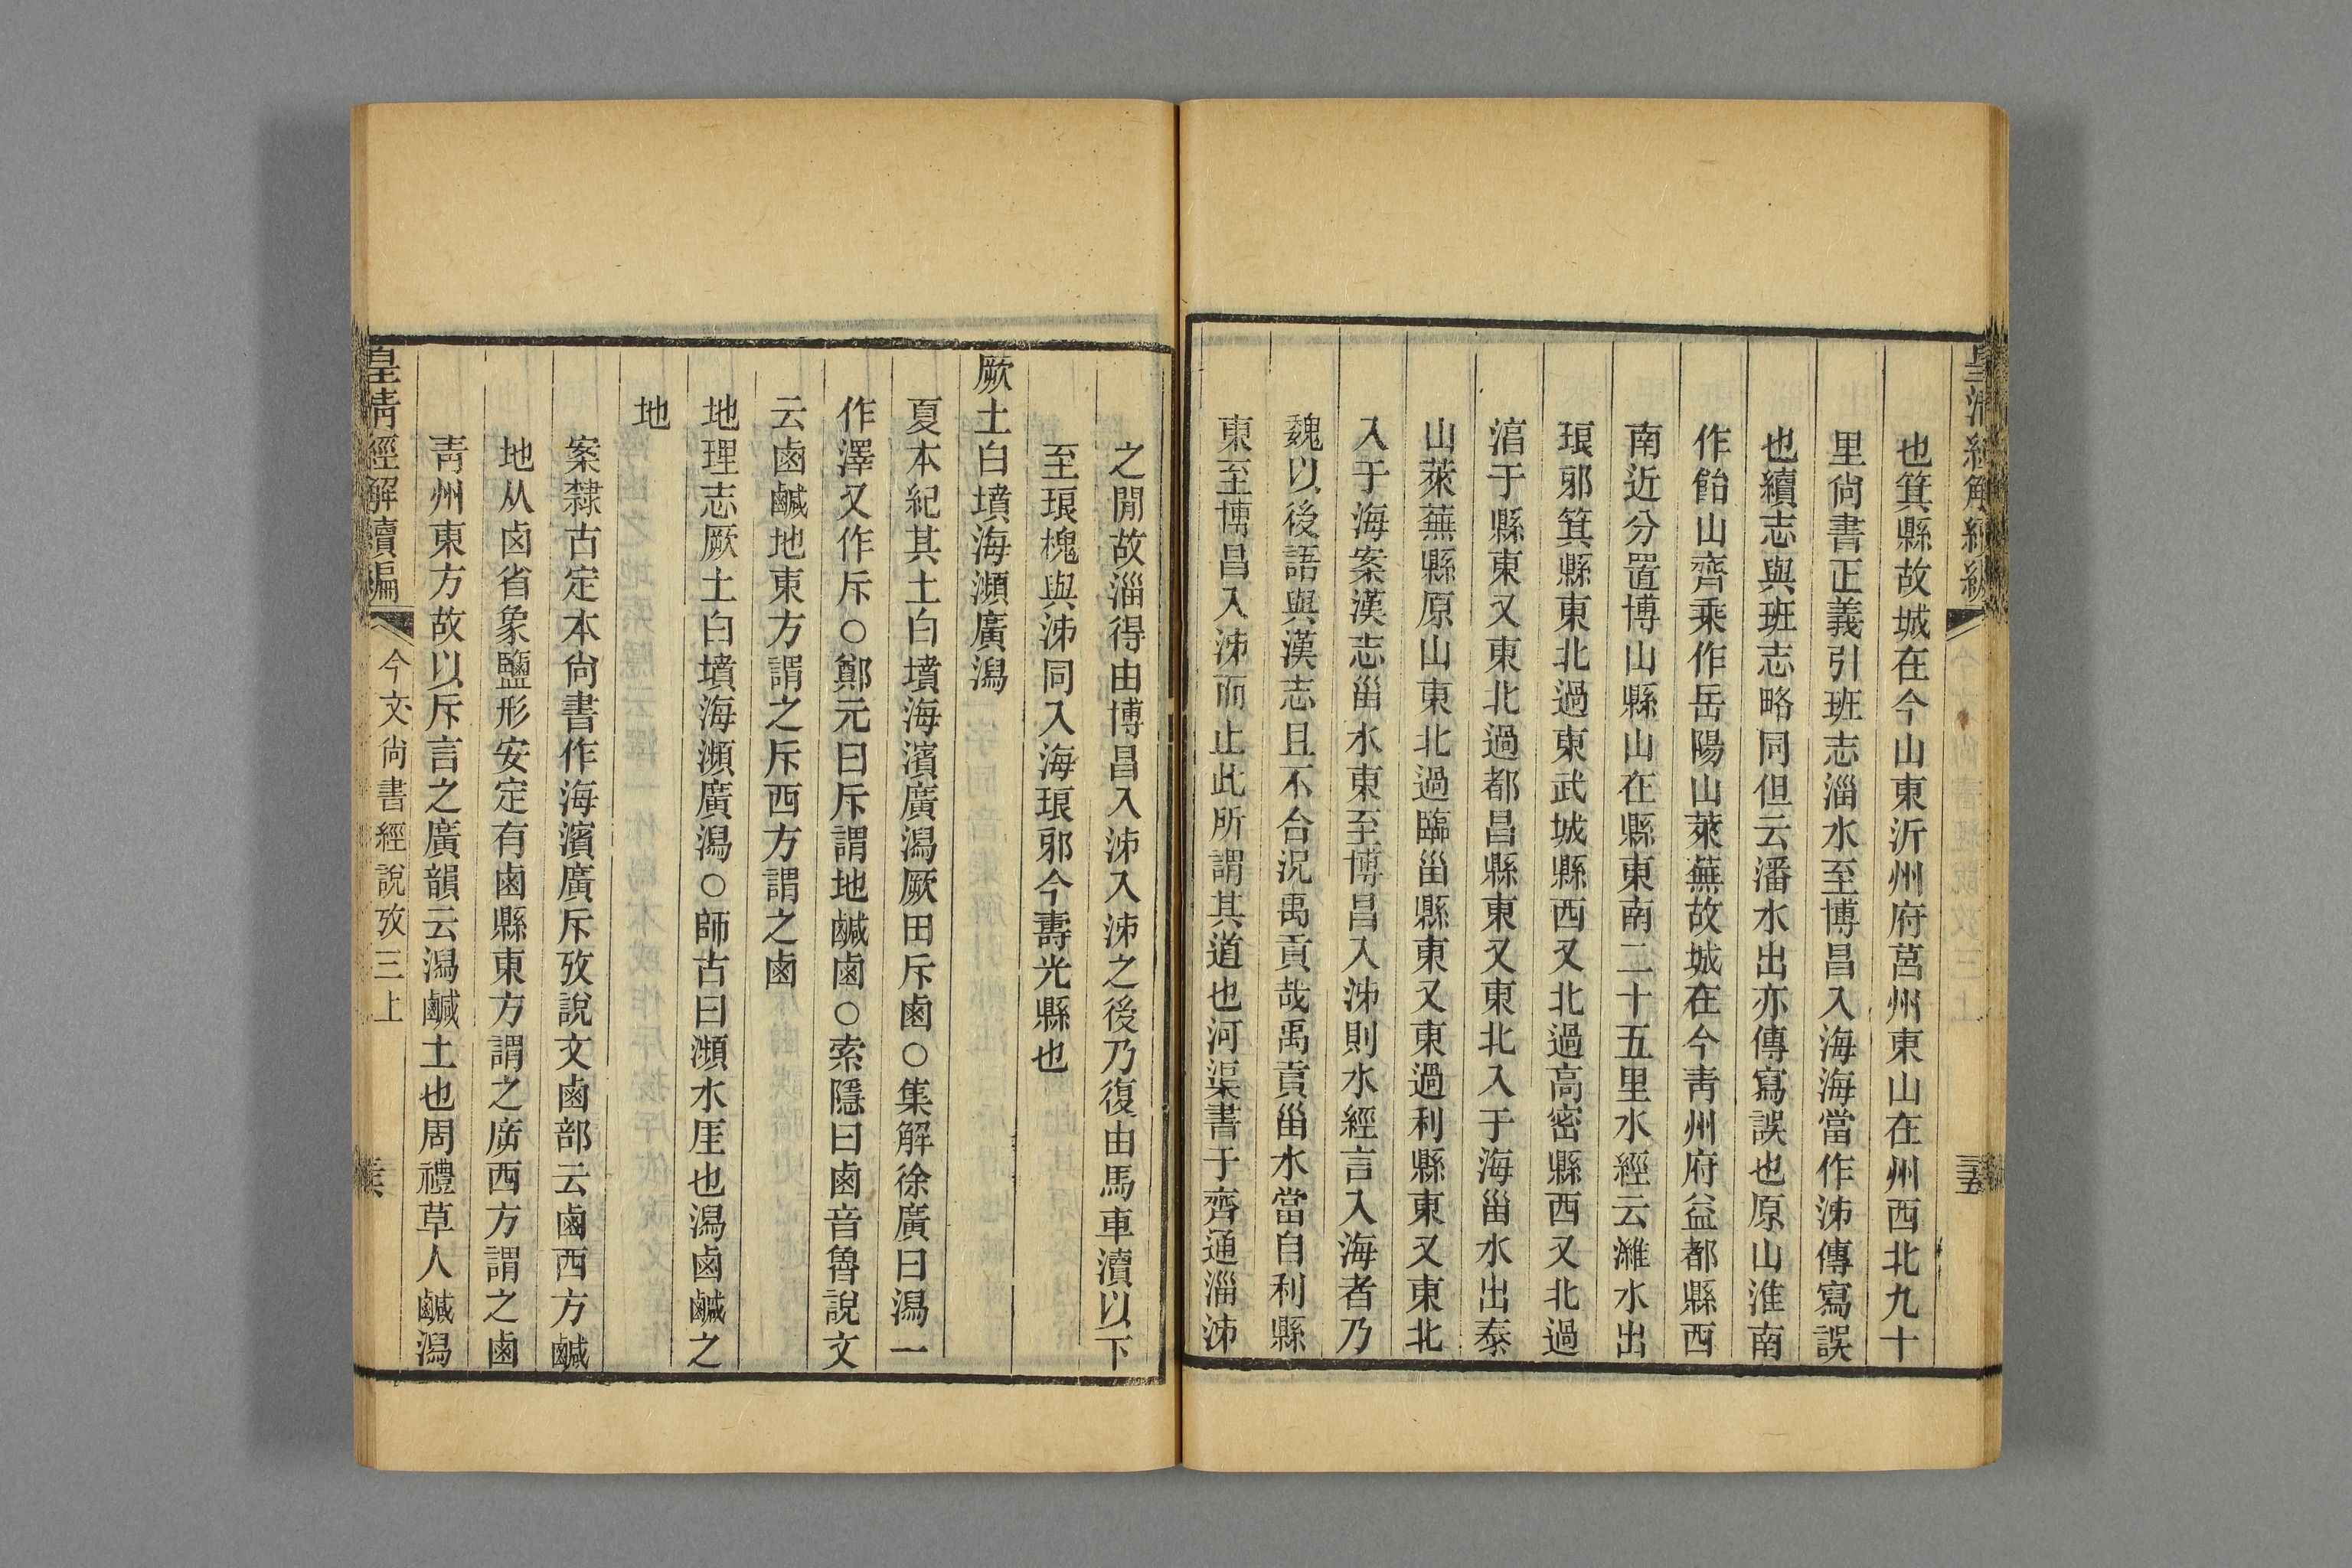 也箕縣故城在今山東沂州府莒州東山在州西北九十
里尙書正義引班志淄水至博昌入海海當作泲傳寫誤
也續志與班志略同但云潘水出亦傳寫誤也原山淮南
作飴山齊乘作岳陽山萊蕪故城在今靑州府益都縣西
南近分置博山縣山在縣東南二十五里水經云濰水出
琅邪箕縣東北過東武城縣西又北過高密縣西又北過
淯于縣東又東北過都昌縣東又東北入于海甾水出泰
山萊蕪縣原山東北過臨甾縣東又東過利縣東又東北
入于海案漢志甾水東至博昌入泲則水經言入海者乃
魏以後語與漢志且不合況禹貢哉禹貢甾水當自利縣
東至博昌入泲而止此所謂其道也河渠書于齊通淄泲
之閒故淄得由博昌入泲入泲之後乃復由馬車瀆以下
至琅槐與泲同入海琅邪今壽光縣也
厥土白墳海瀕廣潟
夏本紀其土白墳海濱廣潟厥田斥鹵○集解徐廣曰潟一
作澤又作斥○鄭元曰斥謂地鹹鹵○索隱曰鹵音魯說文
云鹵鹹地東方謂之斥西方謂之鹵
地理志厥土白墳海瀕廣潟○師古曰瀕水厓也潟鹵鹹之
地
案隸古定本尙書作海濱廣斥攷說文鹵部云鹵西方鹹
地从㐁省象鹽形安定有鹵縣東方謂之㡿西方謂之鹵
靑州東方故以斥言之廣韻云潟鹹土也周禮草人鹹潟
皇淸經解續編
今文尙書經說攷三上